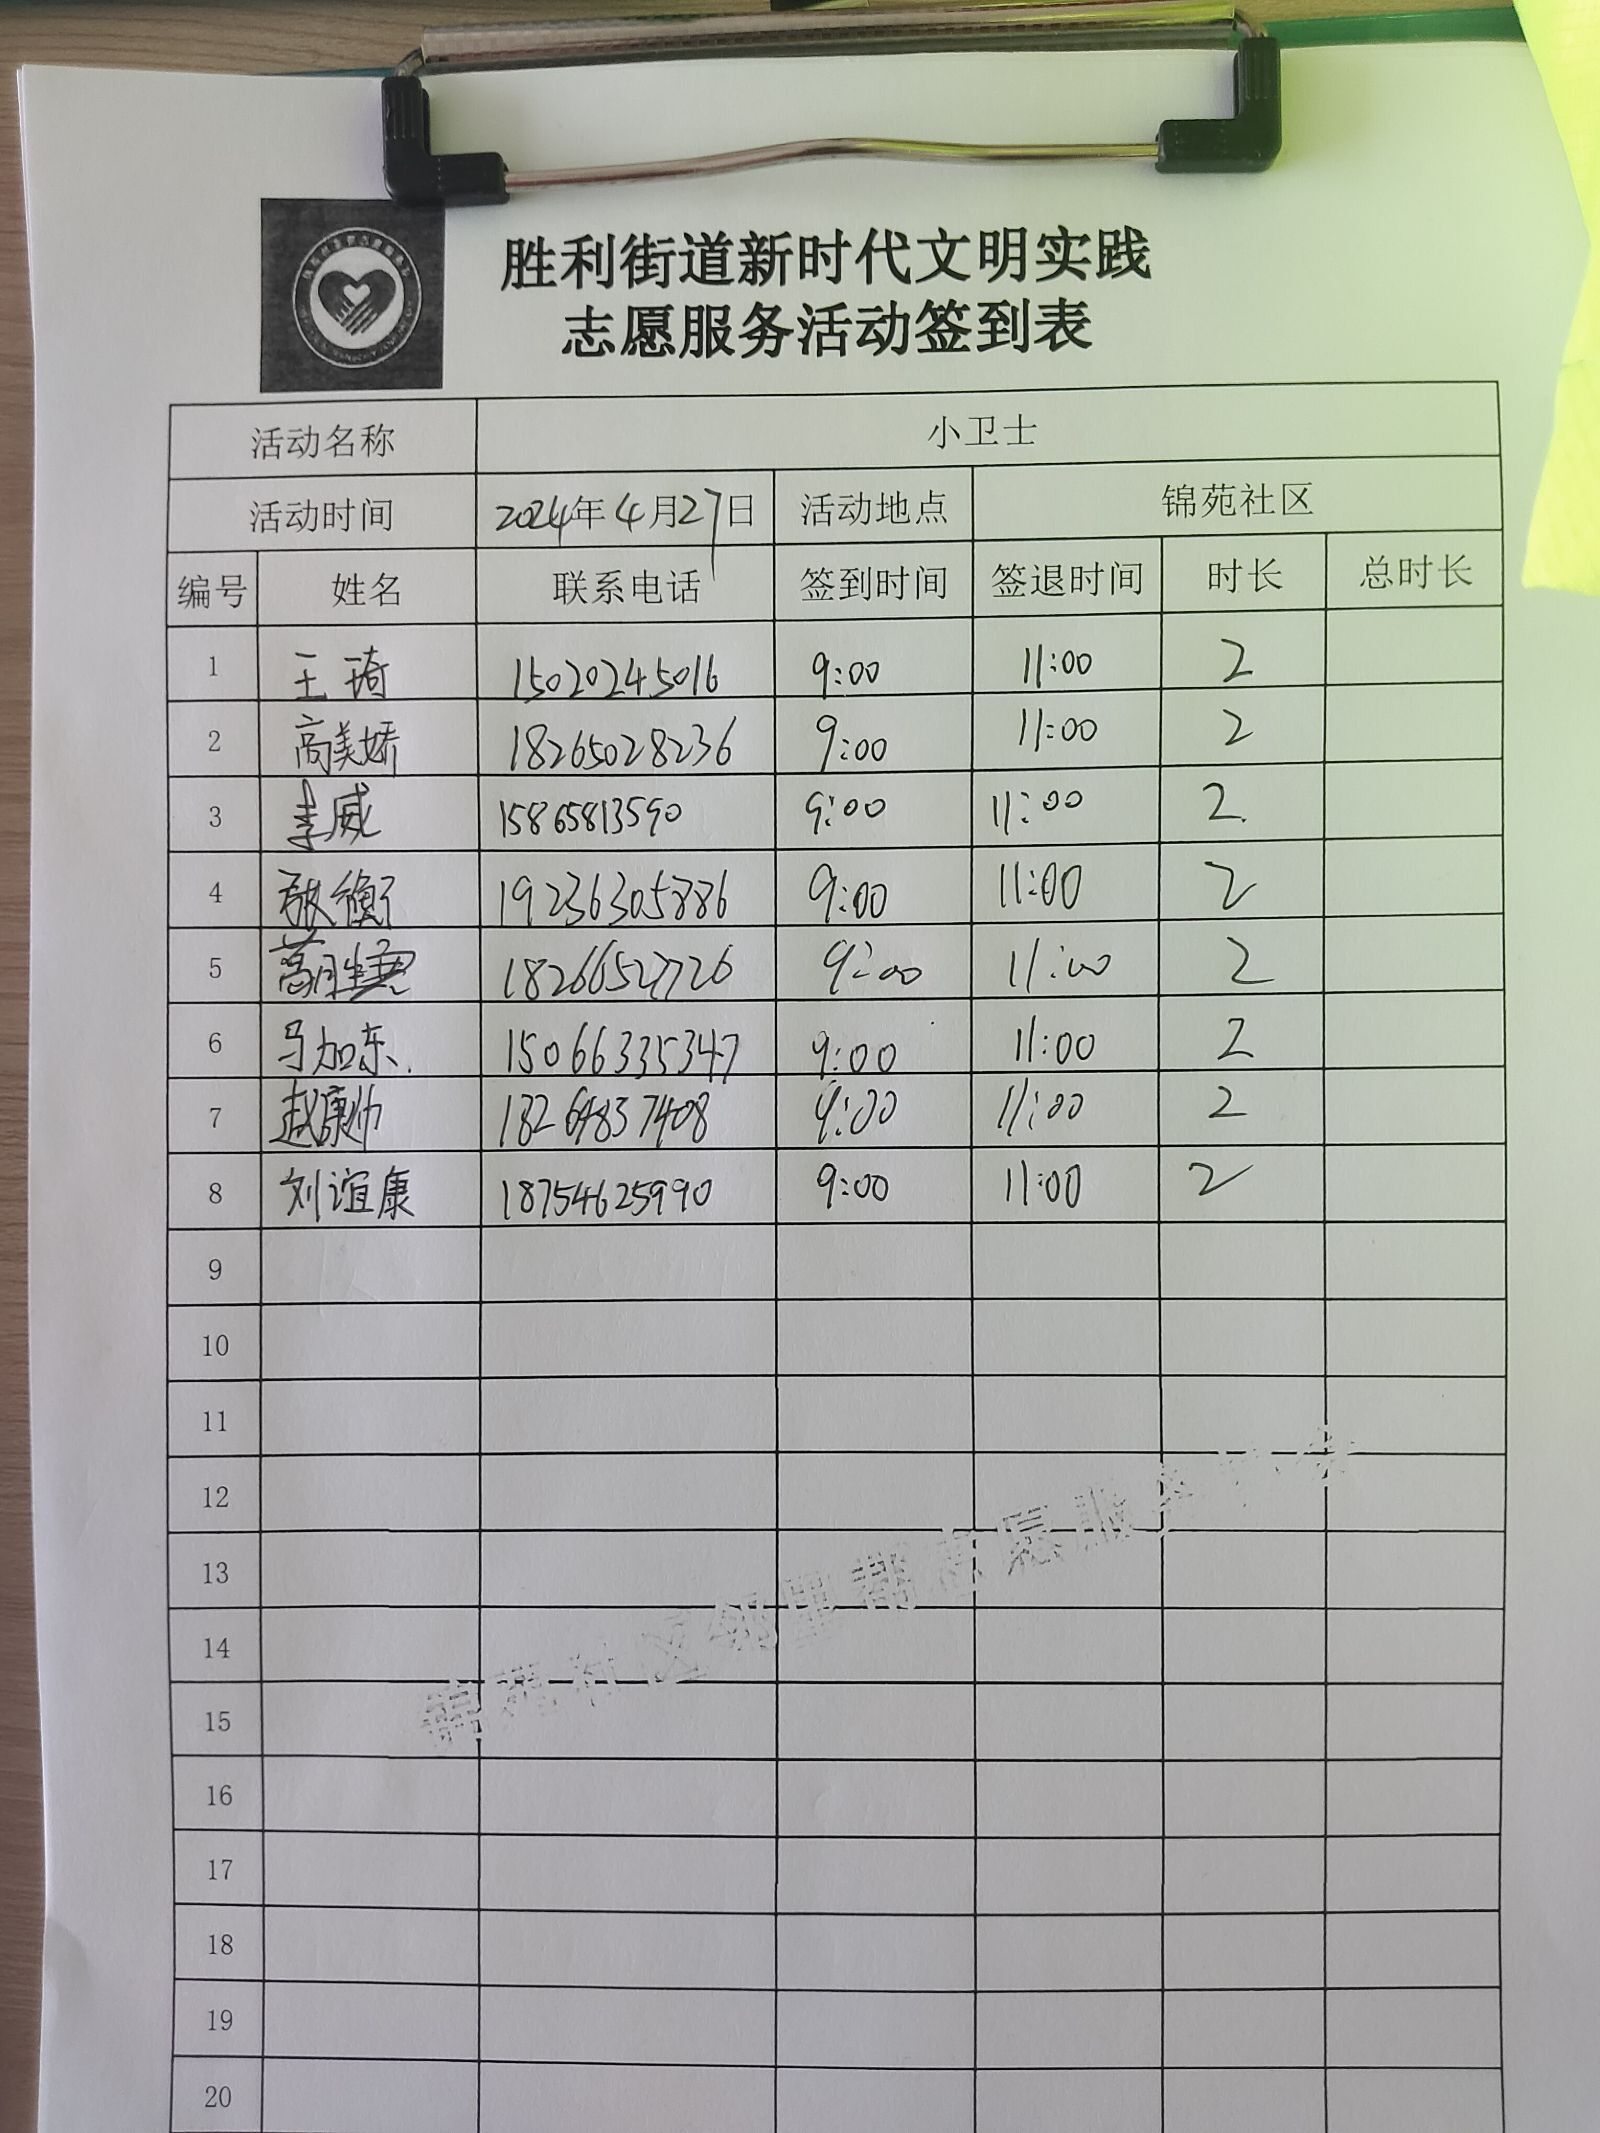 胜利街道新时代文明实践
志愿服务活动签到表
活动名称 小卫士
活动时间 2024年4月27日 活动地点 锦苑社区
编号 姓名 联系电话 签到时间 签退时间 时长 总时长
1 王琦 15020245016 9:00 11:00 2
2 高美娇 18265028236 9:00 11:00 2
3 李威 15865813590 9:00 11:00 2
4 19236305886 9:00 11:00 2
5 18266527726 9:00 11:00 2
6 马加东 15066335347 9:00 11:00 2
7 赵康帅 18264837408 9:00 11:00 2
8 刘谊康 18754625990 9:00 11:00 2
9
10
11
12
13
14
15
16
17
18
19
20
社区邻里帮志愿服务